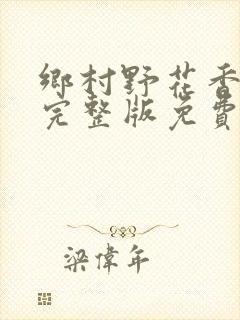 鄉村野花香
完整版免費
梁偉年